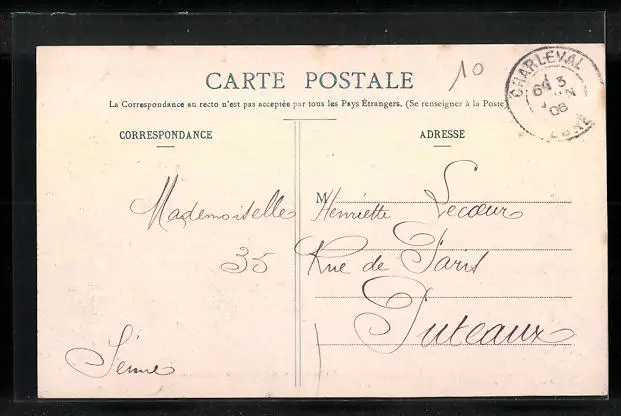 CARTE POSTALE
10
La Correspondance au recto n'est pas acceptée par tous les Pays Étrangers. (Se renseigner à la Poste)
CHARLEVAL
3
08
EURE
CORRESPONDANCE
ADRESSE
Mademoiselle M Henriette Lecœur
35 Rue de Paris
Puteaux
Seine